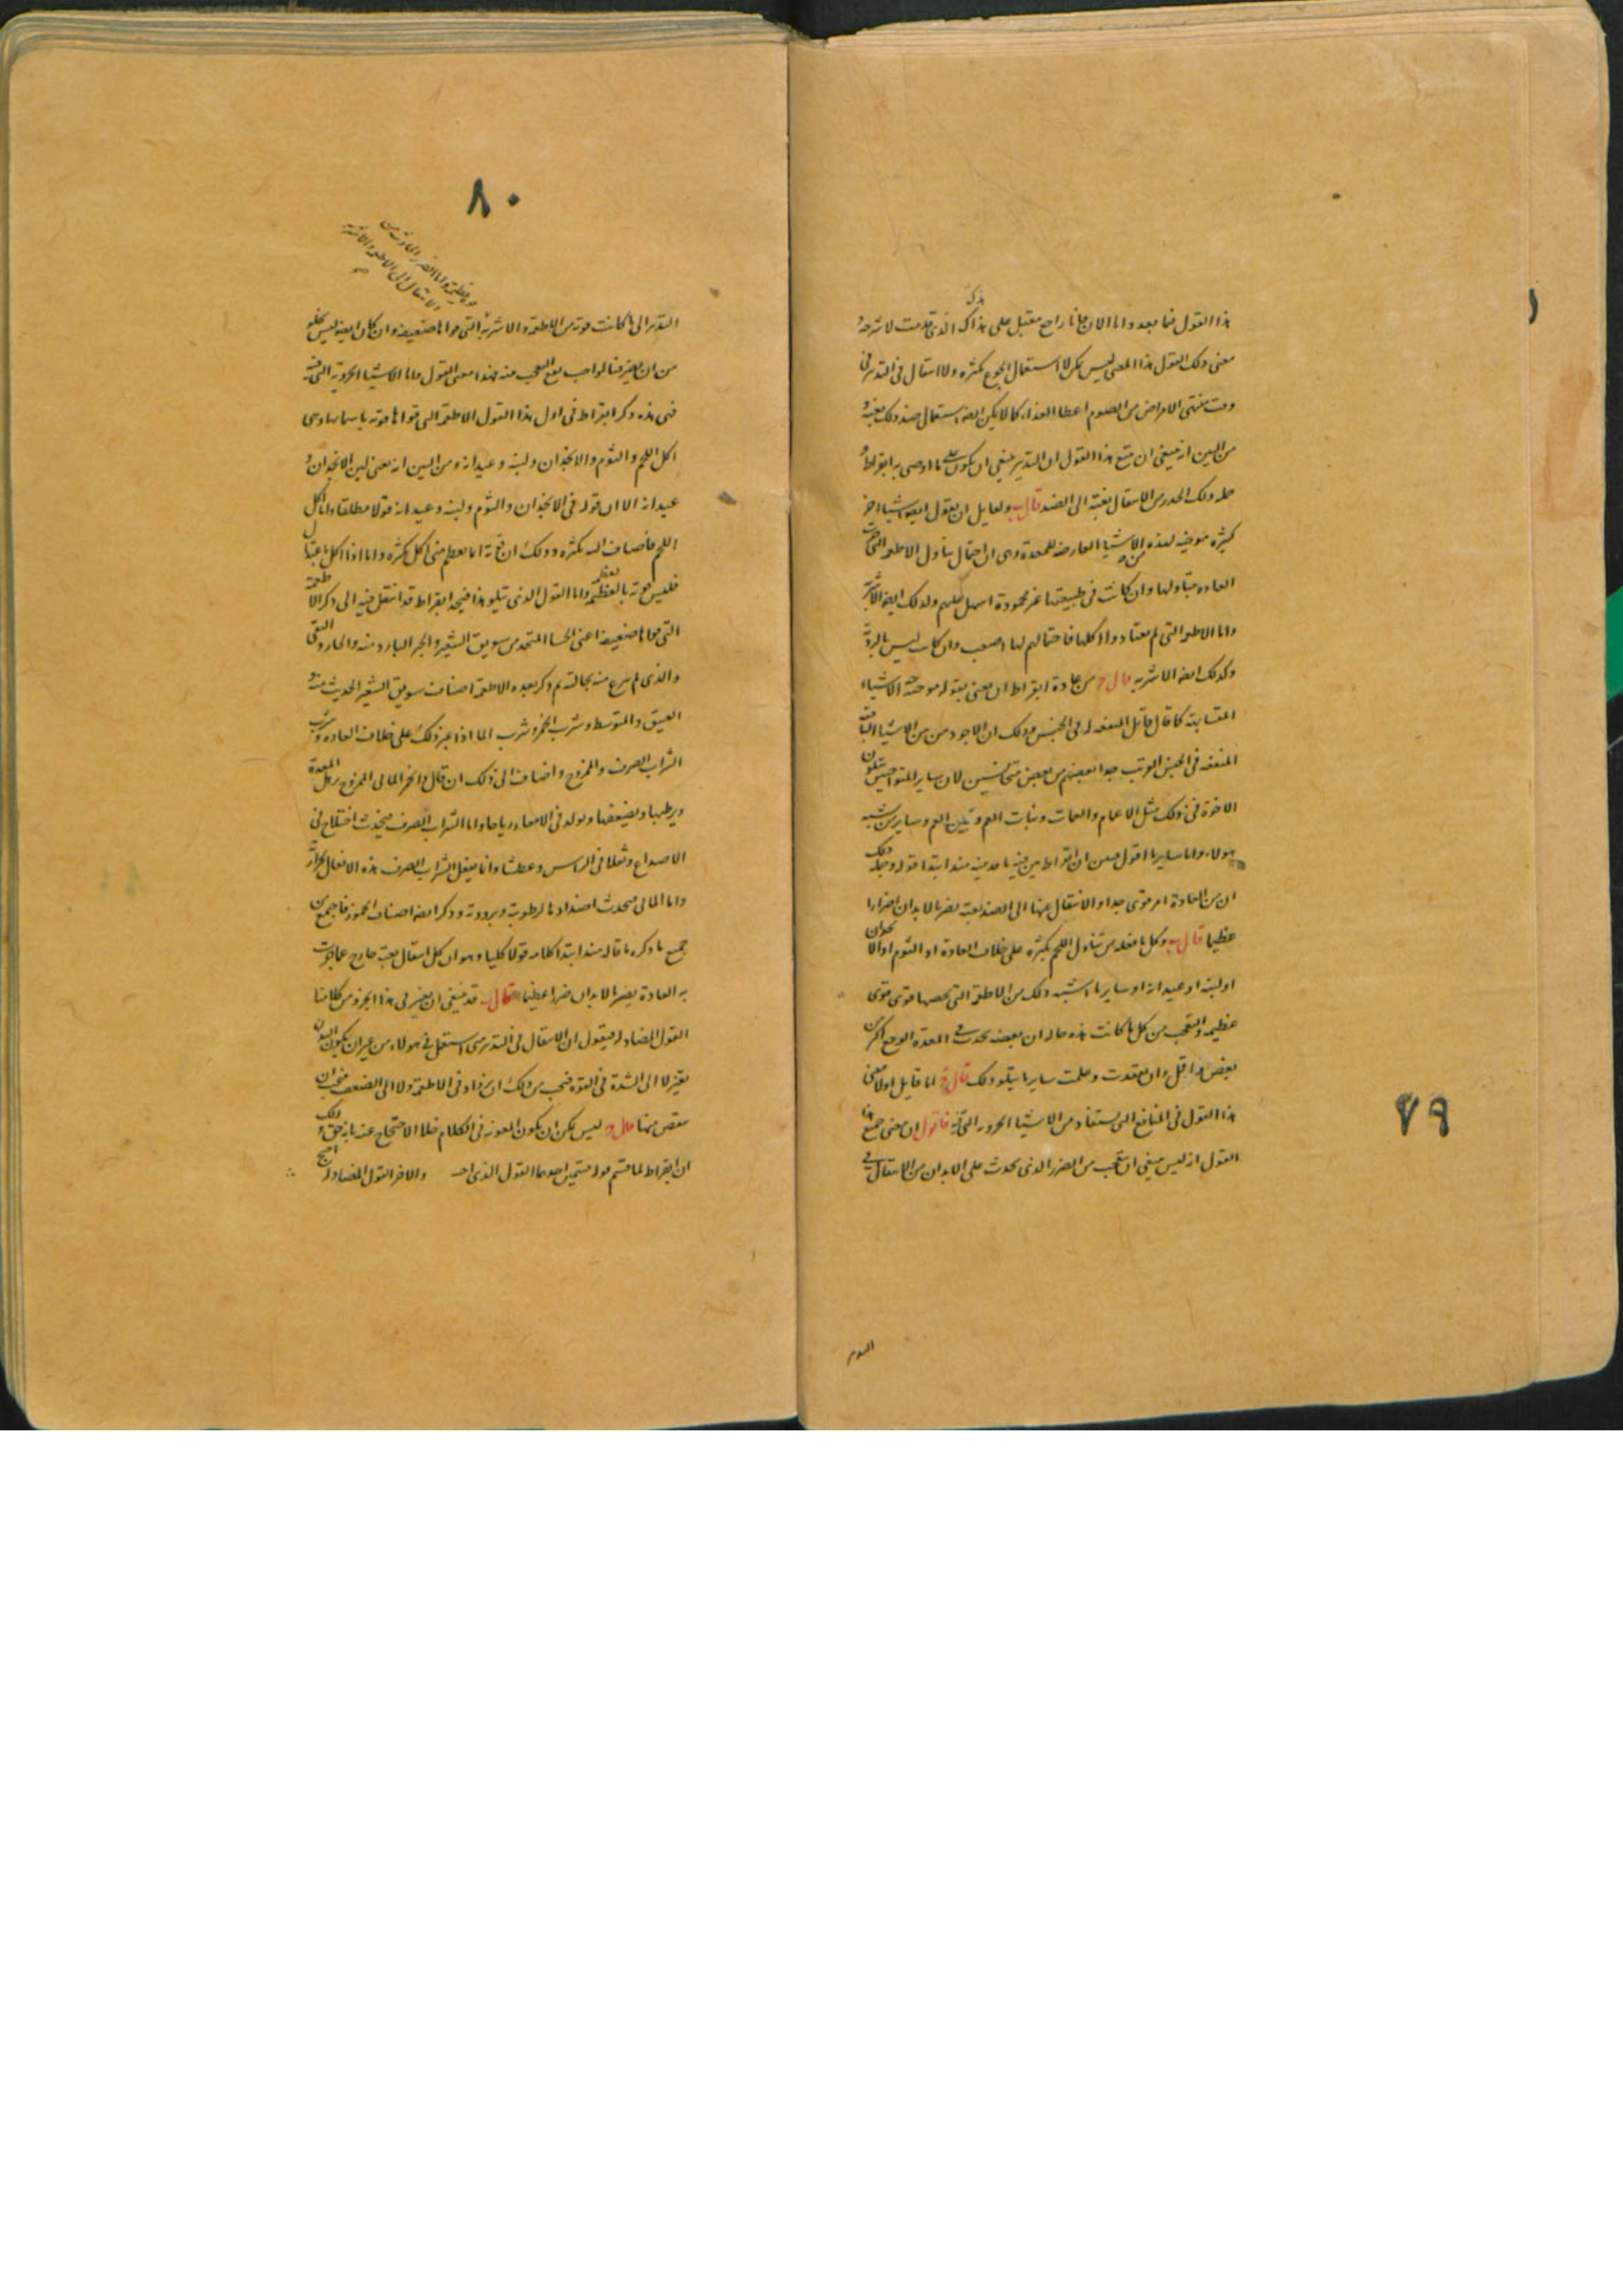 هذا القول فيما بعد واما الان فانا راجع مقبل على ذاك الذى قدمت لاشرحه
معنى ذلك القول هذا المعنى ليس يمكن لا استعمال الجوع بكثره ولا انتقال فى التدبير فى
وقت منتهى الامراض من الصوم اعطا الغذاء كما لا يمكن ايضا استعمال ضد ذلك بغتة و
من البين انه ينبغى ان يتبع هذا القول ان التدبير ينبغى ان يكون على ما اوصى به ابقراط و
جملة ذلك الحذر من الانتقال بغتة الى الضد قال ب ولقايل ان يقول ايضا اشيا اخر
كثيرة مواخيه لهذه الاشيا العارضه للمعدة وهى ان احتمال تناول الاطعمه التى جرت
العاده بتناولها وان كانت فى طبيعتها غير محمودة اسهل عليهم وكذلك ايضا الاشربة
واما الاطعمه التى لم يعتادوا اكلها فاحتمالهم لها اصعب وان كانت ليس بالردية
وكذلك ايضا الاشربه قال ج من عادة ابقراط ان يعنى بقوله مواخية الاشياء
المتشابهة كما قال قايل المتفقه فى الجنس وذلك ان الاجود من من الاشيا الباقية
المتفقه فى الجنس القريب جدا بعضهم من بعض متجانسين لان ساير المتواخيين يتلون
الاخوة فى ذلك مثل الاعمام والعمات وبنات العم وبنين العم وساير من يشبه
هولاء واما ساير ما اقول فبين ان ابقراط يبين فيه ما قدمنه منذ ابتدا قوله وجملة ذلك
ان من العادة امر قوى جدا والانتقال عنها الى الضد بغتة يضر بالابدان اضرارا
عظيما قال ب وكل ما فعله من تناول اللحم بكثره على خلاف العادة او الثوم او الانجدان
او لبنه او عيدانه او ساير ما اشبه ذلك من الاطعمة التى تخصها قوى قوى
عظيمه والتعجب من كل ما كانت هذه حاله ان بعضه يحدث فى المعدة الوجع اكثر من
بعض هذا قل ان تفقدت وعلمت ساير ما يتلو ذلك قال ج اما قايل اولا معنى
هذا القول فى المنافع التى تستفاد من الاشيا الجزوية التى فيه فاقول ان معنى جميع هذا
القول انه ليس ينبغى ان يتعجب من الضرر الذى يحدث على الابدان من الانتقال فى
٧٩
٨٠
التدبير الى ما كانت قوته من الاطعمة والاشربة التى قواها ضعيفه وان كان ايضا ليس يخلو
من ان يضر فبالواجب يقع العجب منه فهذا معنى القول واما الاشيا الجزوية التى فيه
فهى هذه ذكر ابقراط فى اول هذا القول الاطعمة التى قواها قويه باسمايها وهى
اكل اللحم والثوم والانجدان ولبنه وعيدانه ومن البين انه يعنى لبن الانجدان و
عيدانه الا ان قوله فى الانجدان والثوم ولبنه وعيدانه قولا مطلقا واما اكل
اللحم فاضاف اليه بكثره وذلك ان قوته انما تعظم متى اكل بكثره واما اذا اكل باعتدال
فليس قوته بالعظيمة واما القول الذى يتلو هذا فيجد ابقراط قد انتقل فيه الى ذكر الاطعمة
التى قواها ضعيفه اعنى الحسا المتخذ من سويق الشعير والخبز البارد منه والحار والنقى
والذى لم ينزع منه نخالته ثم ذكر بعده الاطعمة اصناف سويق الشعير الحديث منه و
العتيق والمتوسط وشرب الخمر وشرب الما اذا غير ذلك على خلاف العاده وشرب
الشراب الصرف والممزوج واضاف الى ذلك ان قال والخمر المائى الممزوج يرهل المعدة
ويرطبها ويضعفها ويولد فى الامعاء رياحا واما الشراب الصرف فيحدث اختلاج فى
الاصداع وثقلا فى الراس وعطشا وانما يفعل الشراب الصرف هذه الافعال بحرارته
واما المائى فيحدث اضدادها لرطوبته وبرودته وذكر ايضا اصناف الخمور فاجمع من
جميع ما ذكره ما قاله منذ ابتدا كلامه قولا كليا وهو ان كل انتقال بغتة خارج عما جرت
به العادة يضر بالابدان ضررا عظيما قال ب قد ينبغى ان يصير لى هذا الجزو من كلامنا
القول المضاد له فيقول ان الانتقال فى التدبير متى استعمل فى هولاء من غير ان يكون البدن
يتغير لا الى الشدة فى القوه فيجب من ذلك ان يزاد فى الاطعمة ولا الى الضعف فيجب ان
ينقص منها قال ج ليس يمكن ان يكون العوز فى الكلام خللا الاحتجاج عنه بانه حق وذلك
ان ابقراط لما قسم قوله قسمين احدهما القول الذى احـ والاخر القول المضاد له